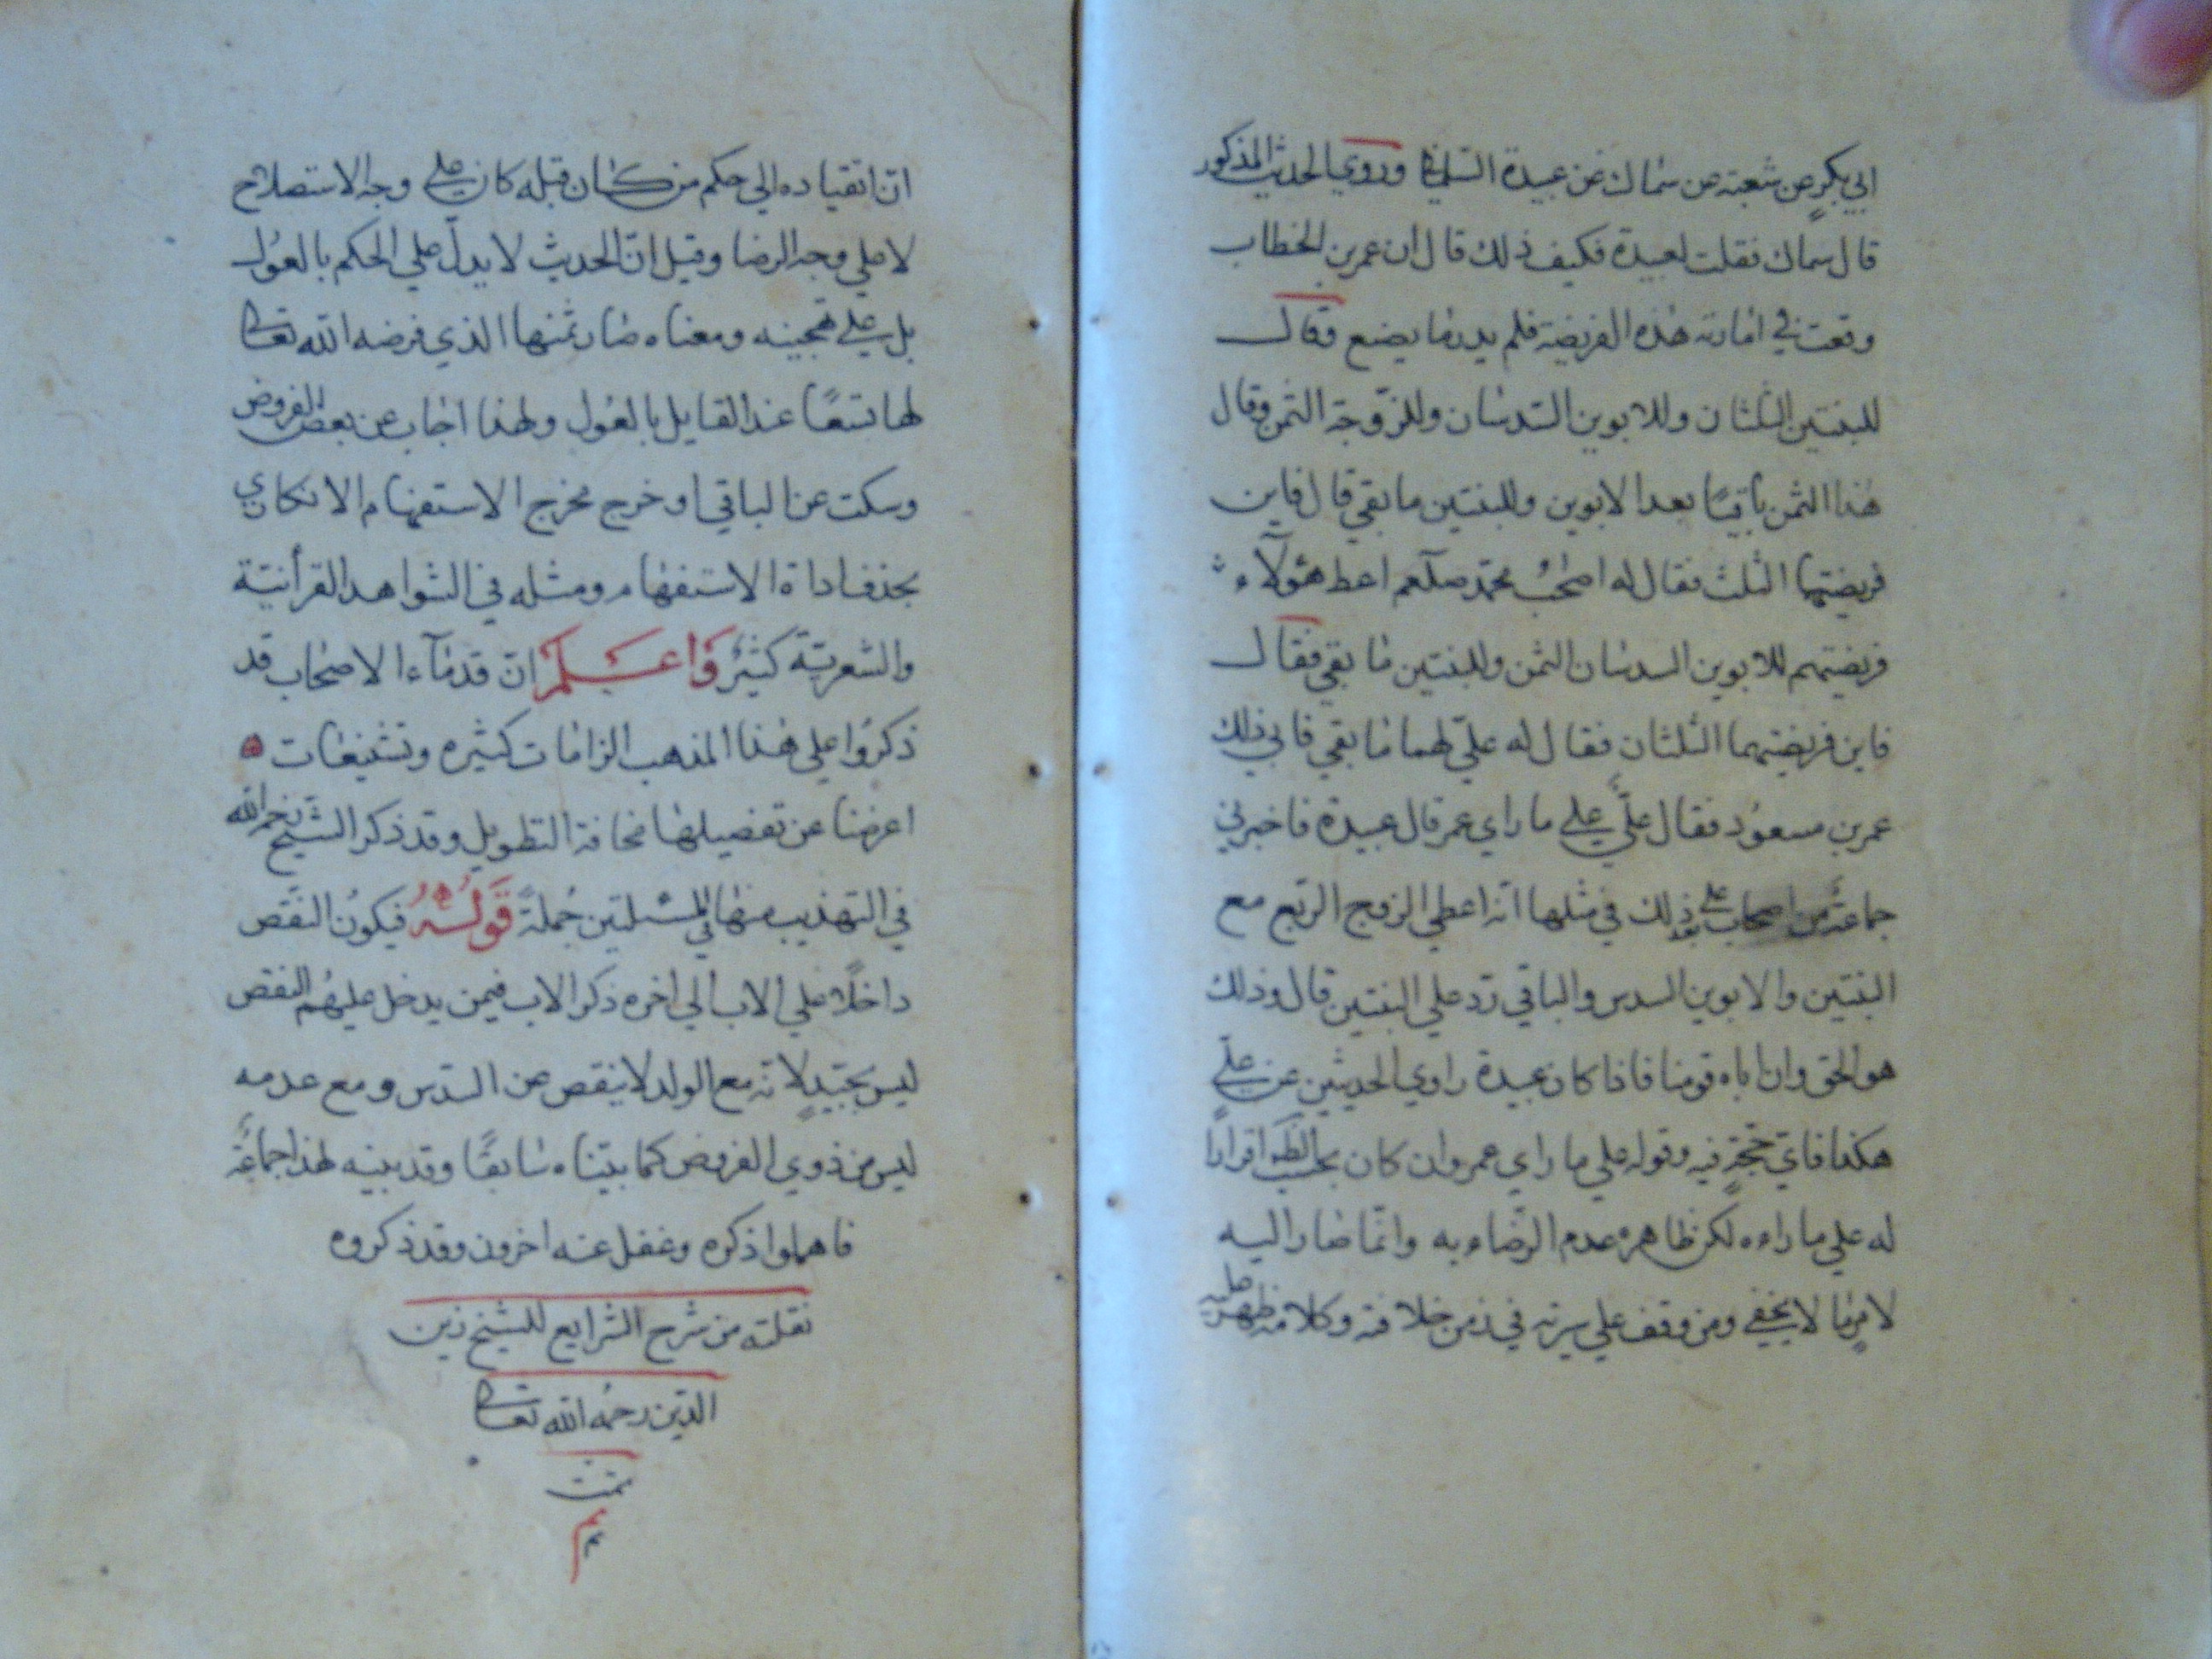 ابي بكرٍ عن شعبة عن سماك عن عبيدة السلماني وروي الحديث المذكور
قال سماك فقلت لعبيدة فكيف ذلك قال ان عمر بن الخطاب
وقعت في امارته هذه الفريضة فلم يدر ما يصنع وقال
للبنتين الثلثان وللابوين السدسان وللزوجة الثمن وقال
هذا الثمن باقيًا بعد الابوين وللبنتين ما بقي قال فاين
فريضتهما الثلث فقال له اصحٰب محمد صلعم اعط هؤلآء
فريضتهم للابوين السدسان الثمن وللبنتين ما بقي فقال
فاين فريضتهما الثلثان فقال له عليّ لهما ما بقي فابي ذلك
عمر بن مسعود فقال عليّ علي ما راي عمر قال عبيدة فاخبرني
جماعة من اصحاب علي بذلك في مثلها انه اعطي الزوج الربع مع
البنتين والابوين السدس والباقي ردّ علي البنتين قال وذلك
هو الحق وان اباه قومنا فاذا كان عبيدة راوي الحديثين عن عليّ
هكذا فايّ حجّة فيه وقوله علي ما راي عمر وان كان بحسب الظ اقرارًا
له علي ما راءه لكن ظاهره عدم الرضاء به وانما صار اليه
لامرٍ ما لا يخفي ومن وقف علي سيرته في زمن خلافته وكلامه ظهر
انّ انقياده الي حكم من كان قبله كان علي وجه الاستصلاح
لا علي وجه الرضا وقيل انّ الحديث لا يدلّ علي الحكم بالعول
بل علي تهجينه ومعناه صار ثمنها الذي فرضه الله تعالى
لها تسعًا عند القايل بالعول ولهذا اجاب عن بعض الفروض
وسكت عن الباقي او خرج مخرج الاستفهام الانكاري
بحذف اداة الاستفهام ومثله في الشواهد القرأنيّة
والشعريّة كثير واعلم انّ قدمآء الاصحاب قد
ذكروا علي هذا المذهب الزامات كثيره وتشنيعات
اعرضنا عن تفصيلها مخافة التطويل وقد ذكر الشيخ رحمه الله
في التهذيب منها في المسئلتين جُملةً قوله فيكون النقص
داخلًا علي الاب الي اخره ذكر الاب فيمن يدخل عليهم النقص
ليس بجيّدٍ لانه مع الولد لا ينقص عن السدس ومع عدمه
ليس من ذوي الفروض كما بيّناه سابقًا وقد بينه لهذا جماعة
فاهملوا ذكره وغفل عنه اخرون وقد ذكروه
نقلته من شرح الشرايع للشيخ زين
الدين رحمه الله تعالى
تمت